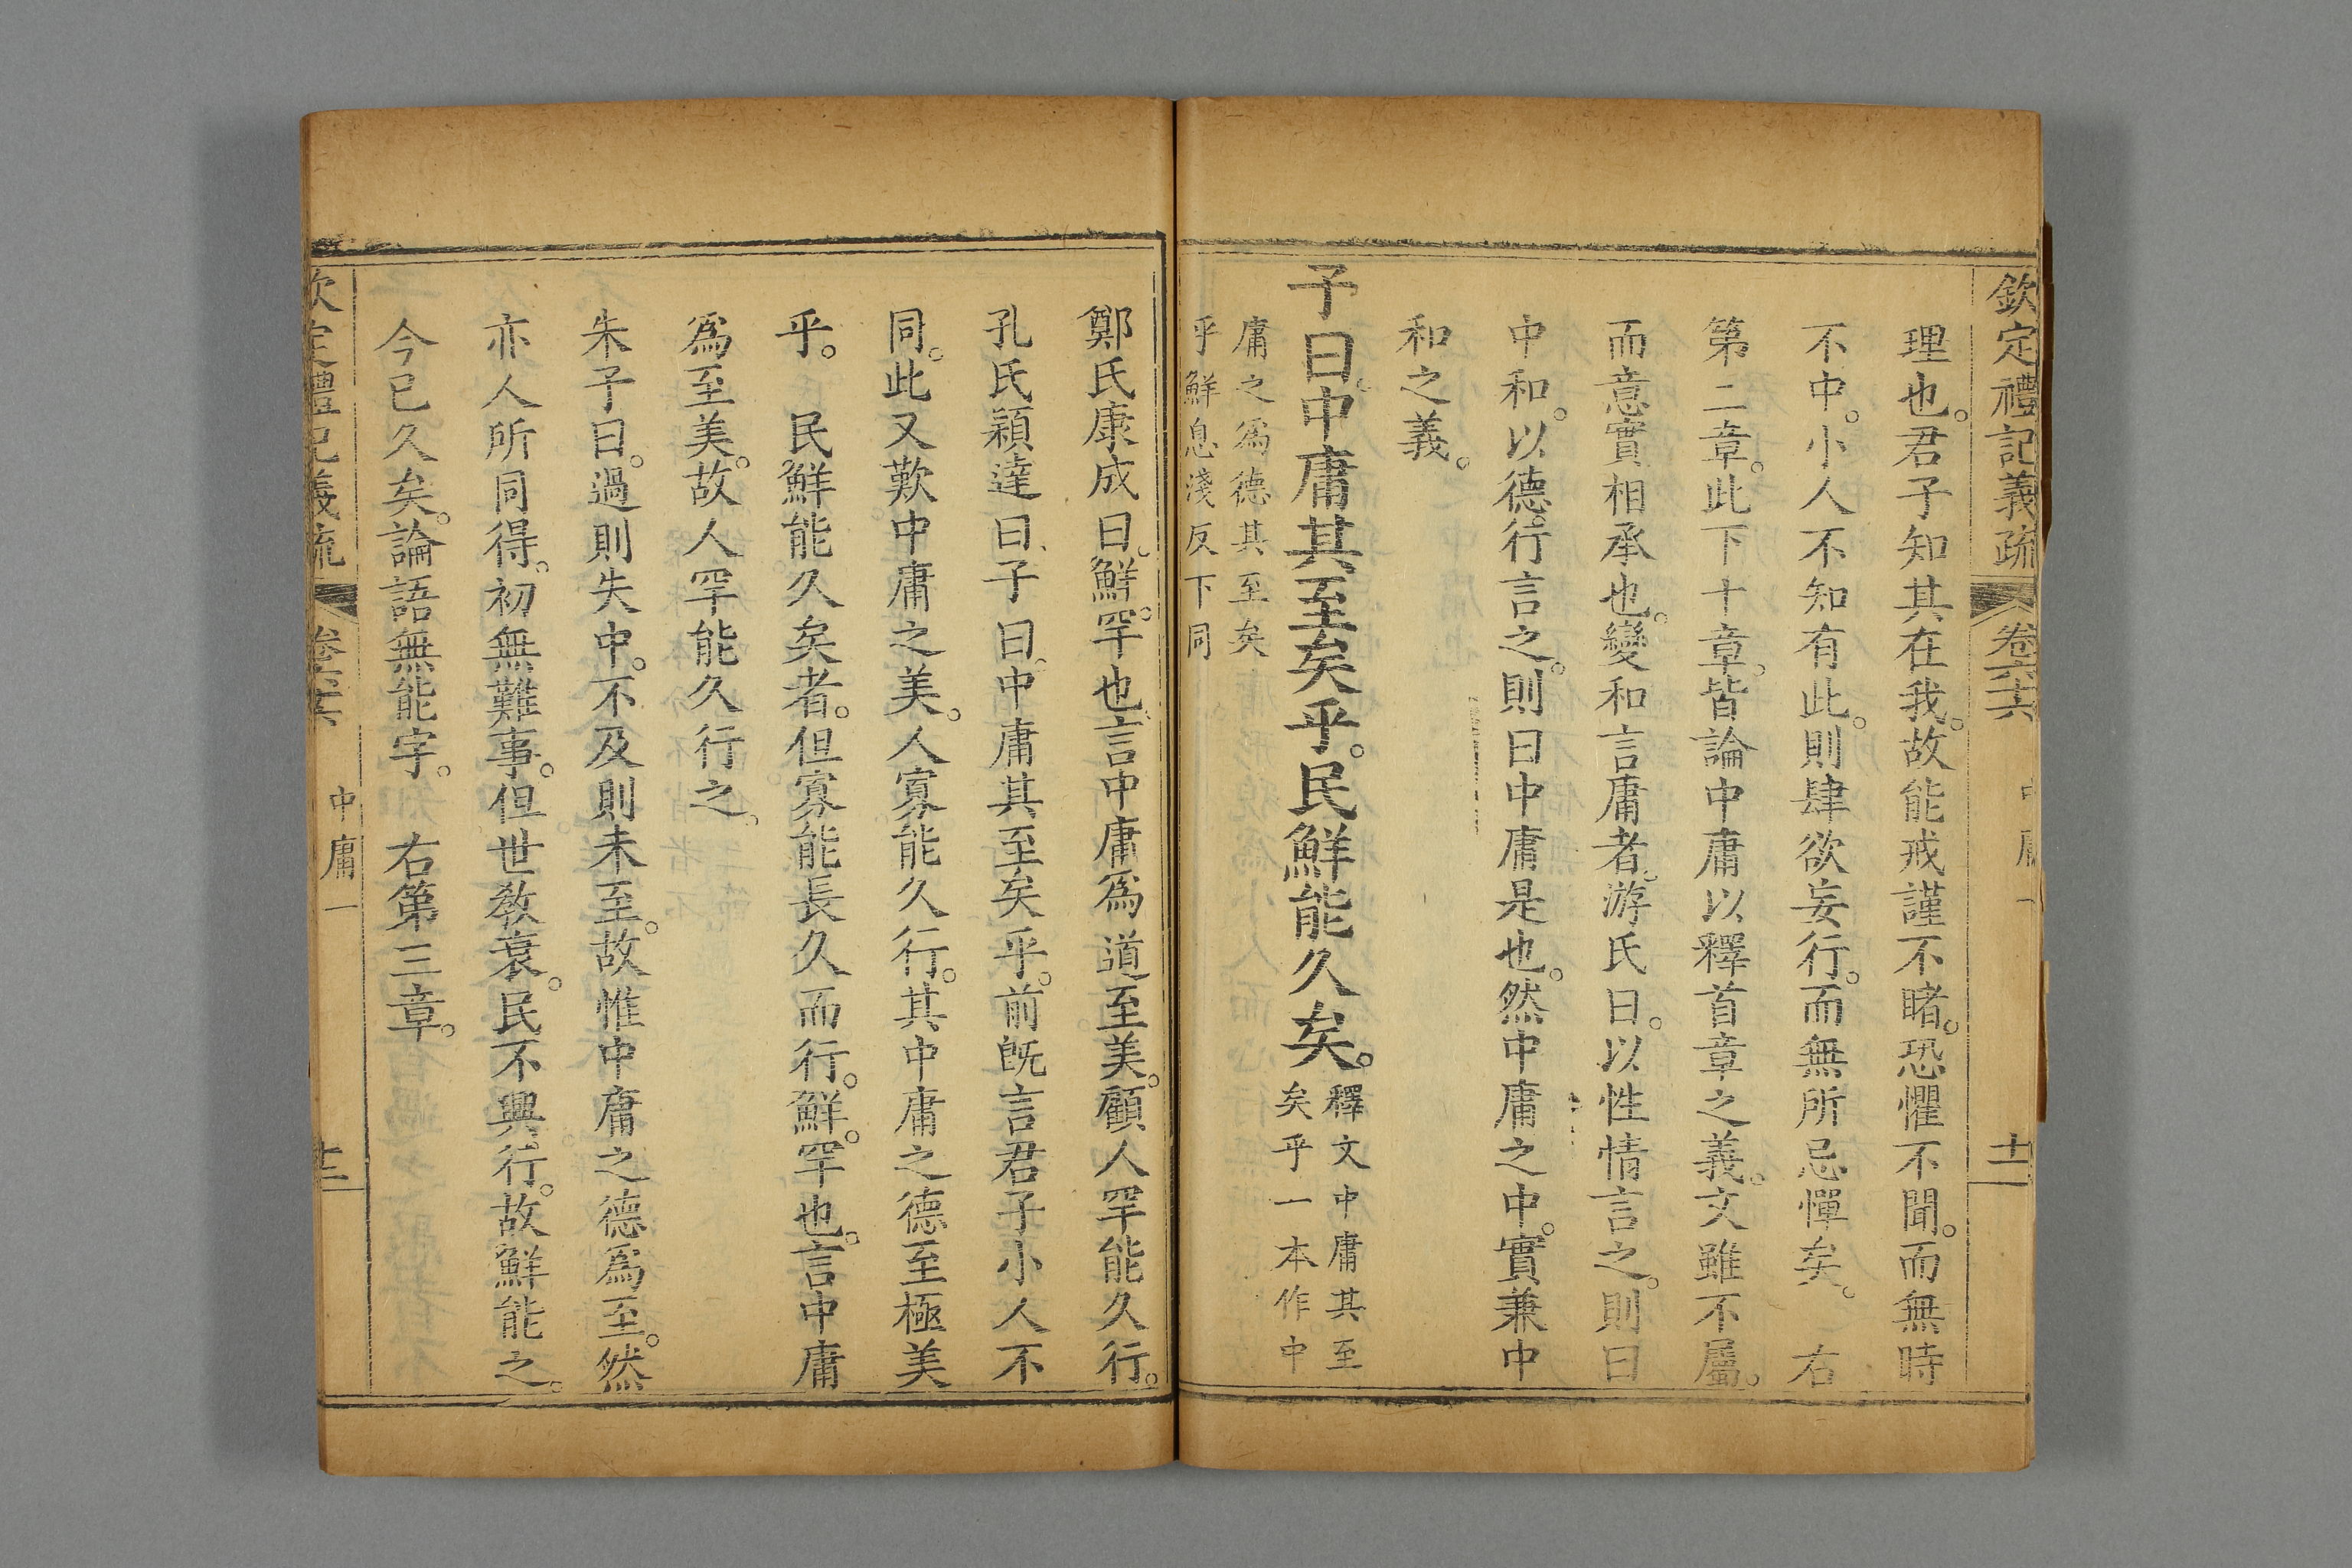 欽定禮記義疏 卷六十六 中庸一 十二
理也。君子知其在我。故能戒謹不睹。恐懼不聞。而無時
不中。小人不知有此。則肆欲妄行。而無所忌憚矣。 右
第二章。此下十章。皆論中庸以釋首章之義。文雖不屬。
而意實相承也。變和言庸者。游氏曰。以性情言之。則曰
中和。以德行言之。則曰中庸是也。然中庸之中。實兼中
和之義。
子曰。中庸其至矣乎。民鮮能久矣。
釋文中庸其至
矣乎一本作中
庸之為德其至矣
乎鮮息淺反下同
鄭氏康成曰。鮮。罕也。言中庸為道至美。顧人罕能久行。
孔氏穎達曰。子曰。中庸其至矣乎。前旣言君子小人不
同。此又歎中庸之美。人寡能久行。其中庸之德至極美
乎。 民鮮能久矣者。但寡能長久而行。鮮。罕也。言中庸
爲至美。故人罕能久行之。
朱子曰。過則失中。不及則未至。故惟中庸之德爲至。然
亦人所同得。初無難事。但世教衰。民不興行。故鮮能之。
今已久矣。論語無能字。 右第三章。
欽定禮記義疏 卷六十六 中庸一 十三